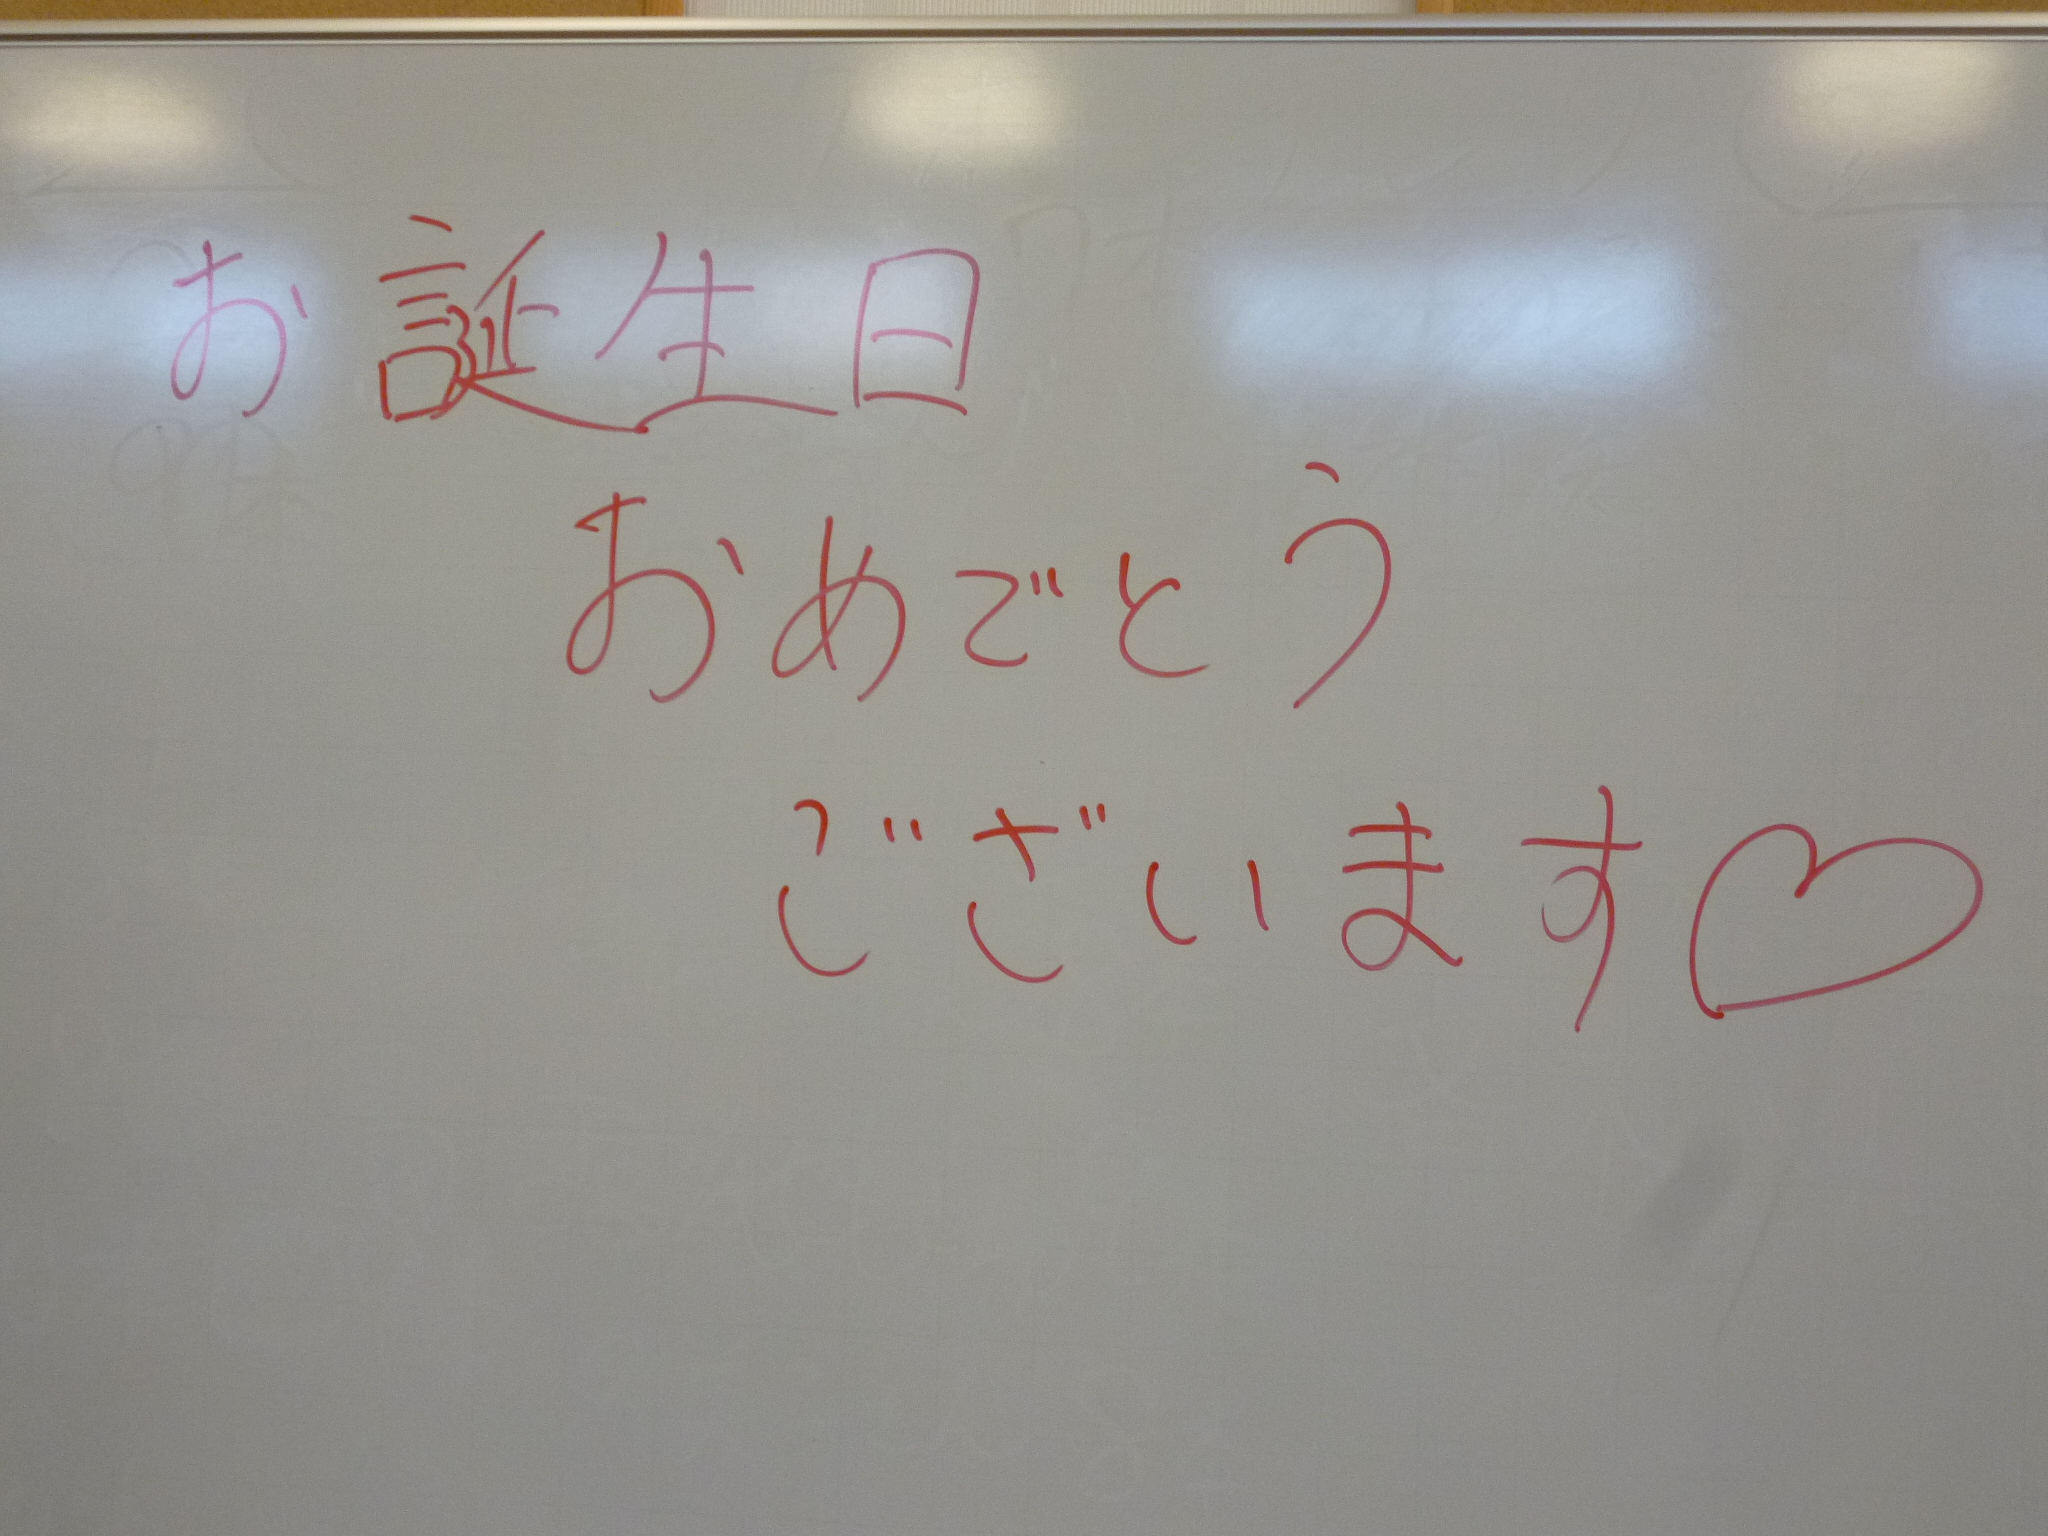 お誕生日
おめでとう
ございます♡